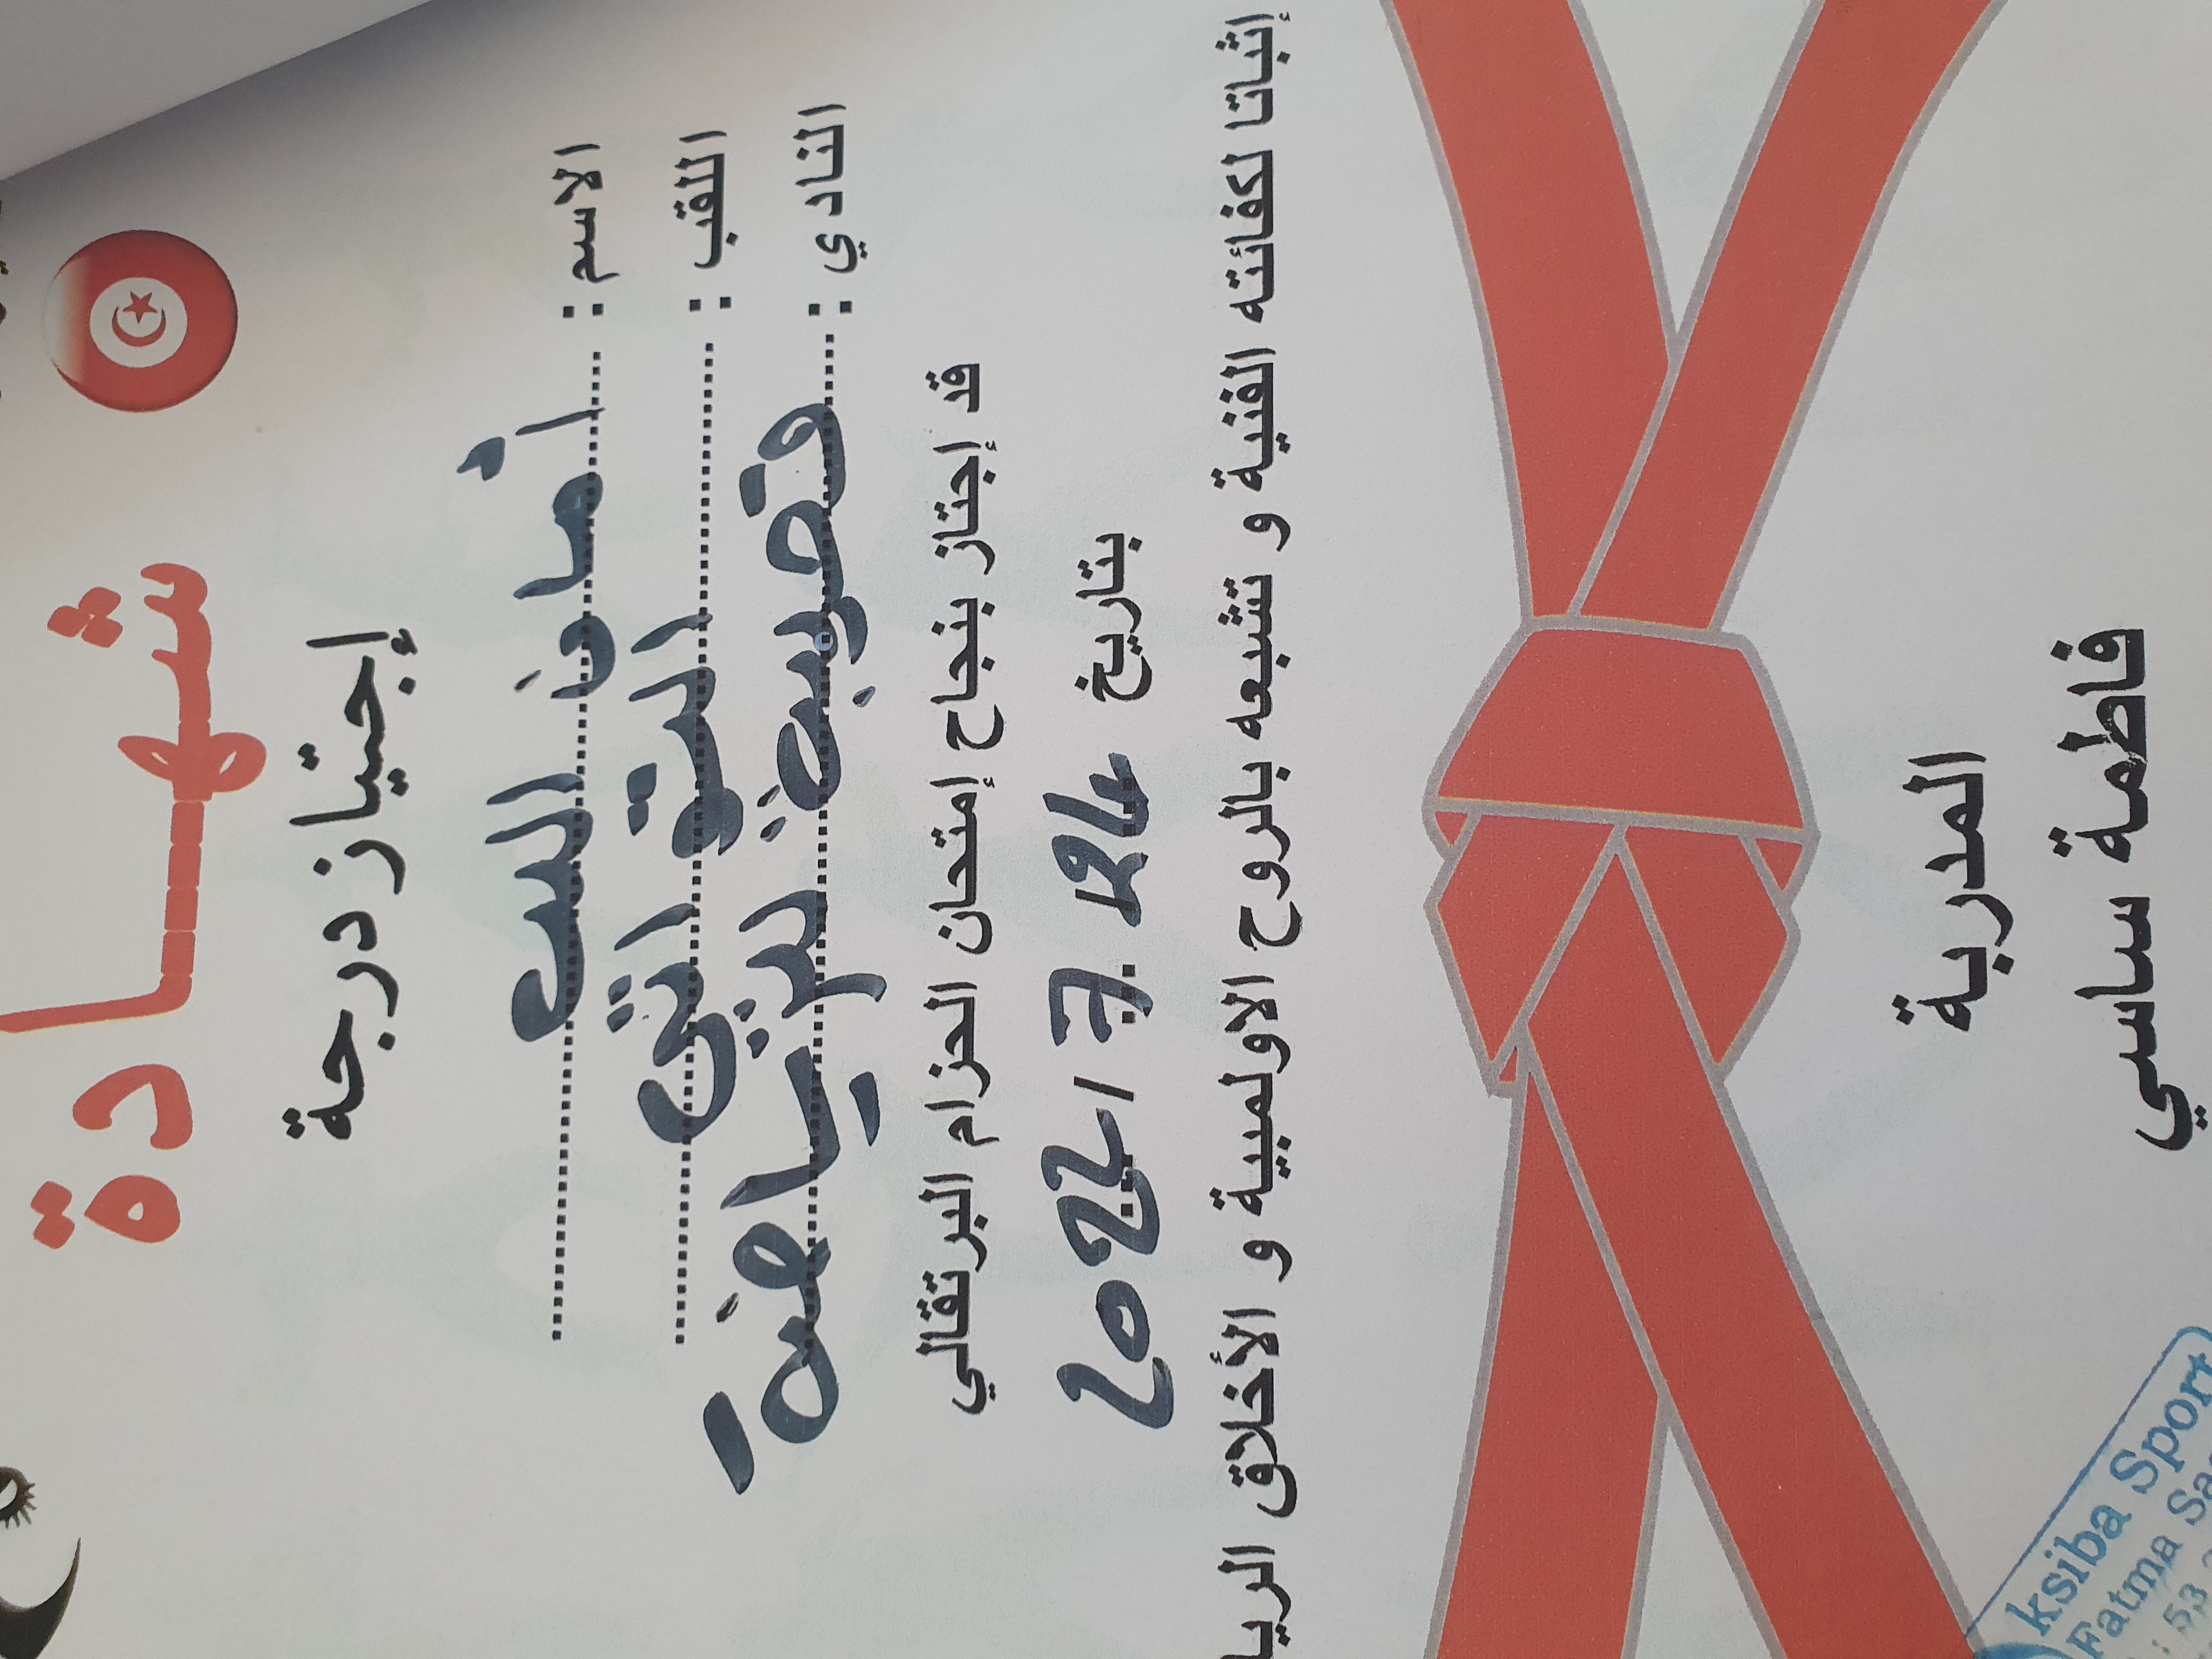 شهادة
إجتياز درجة
الاسم :
اللقب :
النادي : قصيبة الرياضية
قد إجتاز بنجاح إمتحان الحزام البرتقالي
بتاريخ 2022/7/24
إثباتا لكفائته الفنية و تشبعه بالروح الاولمبية و الأخلاق الريا
المدربة
فاطمة ساسي
ksiba Sport
Fatma Sa
: 53